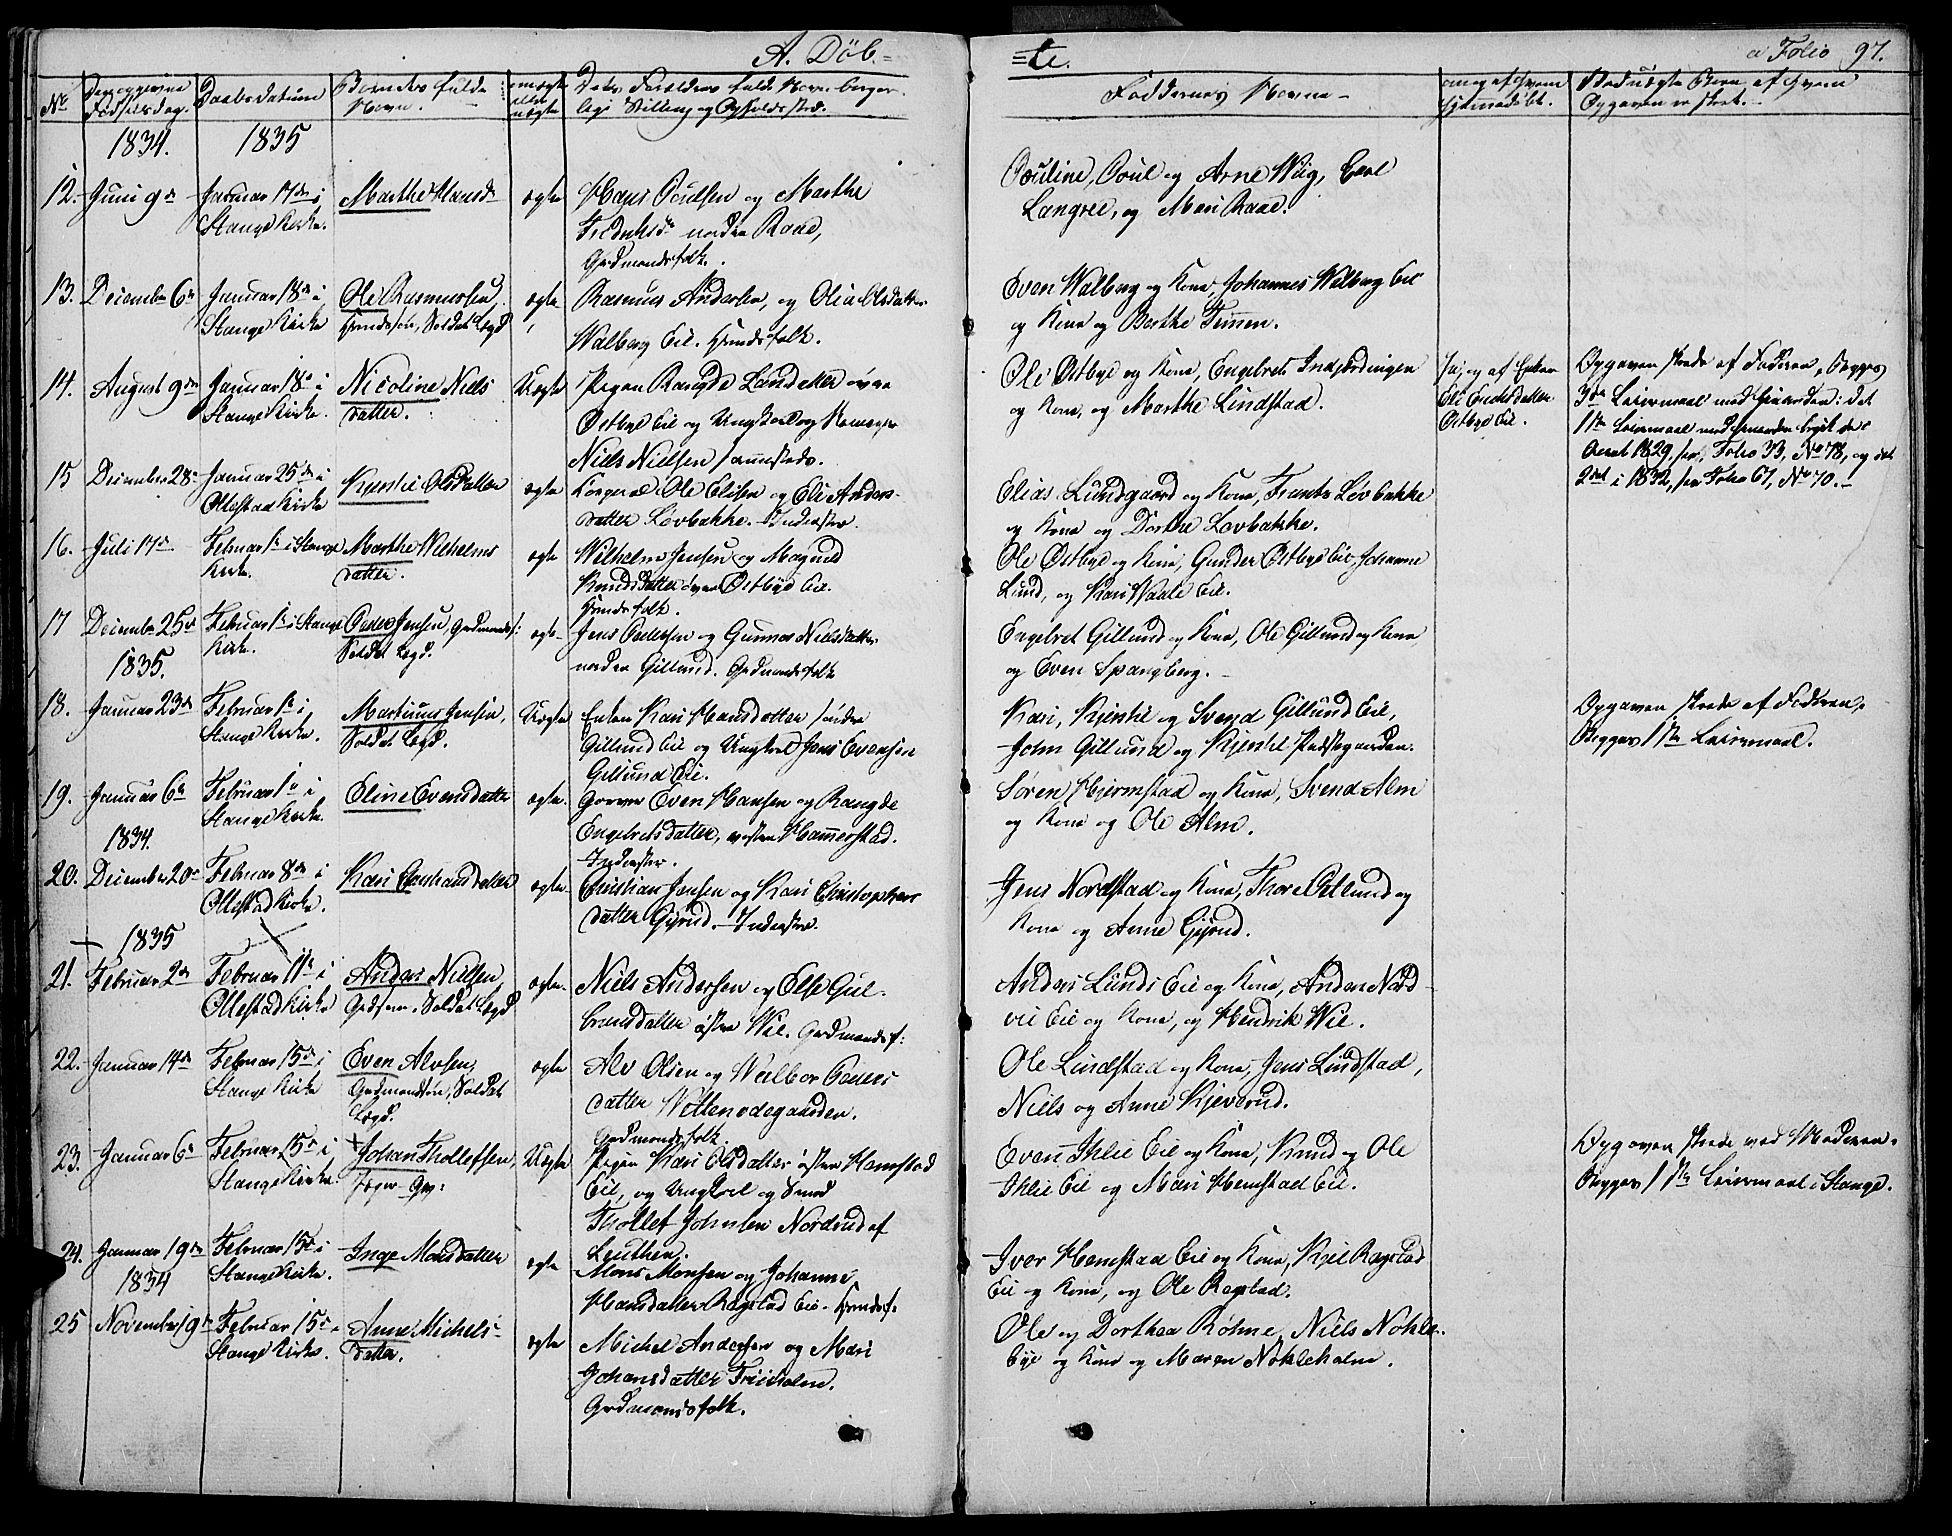 A. Döb-
=te.
a Folio 97.
No
Den opgivne
Fødselsdag.
Daabsdatum
Barnets fulde
Navn.
Faddernes Navne
1834.
1835
12. Juni 9de
Januar 17de i
Stange Kirke.
Marthe Hansd
ægte
Hans Poulsen og Marthe
nordre Raae,
Gaardmandsfolk.
Pouline, Poul og Arne Wiig,
og Mari Raae.
13. December 6te
Januar 18de i
Stange Kirke
Ole Rasmussen,
Soldat Lægd
ægte
Rasmus Andersen, og Olia Olsdatter
Walberg Eie. Huusfolk.
Even Walberg og Kone, Johannes Walberg Eie
og Kone og Berthe Timen.
14. August 9de
Januar 18de i
Stange Kirke.
Nicoline Niels
datter.
Uægte
Pigen Rangde
Østbye Eie og Ungkarl og
Niels Nielsen sammesteds.
Ole Østbye og Kone, Engebret
og Kone, og Marthe Lindstad.
Østbye Eie.
Opgaven skede af Faderen, Begges
3die Leiermaal med hinanden: det
1ste Leiermaal med hinanden
Aaret 1829, see Folio 33, No 78, og det
2det i 1832, see Folio 67, No 70.
15 December 28de
Januar 25de i
Ottestad Kirke
Kjersti Olsdatter
ægte
Ole Elisen og Eli Anders-
datter Løvbakke. Inderster.
Elias Lundgaard og Kone, Frants Løvbakke
og Kone og Dorthe Løvbakke.
16. Juli 17de
Februar 1ste i Stange
Kirke.
Marthe Wilhelms
datter.
ægte
Wilhelm Jensen og
Knudsdatter øvre Østbye Eie.
Huusfolk.
Ole Østbye og Kone, Gunder Østbye Eie, Johanne
Lund, og Kari Waale Eie.
17 December 25de
Februar 1ste i Stange
Kirke.
Peder Jensen,
Soldat Lægd.
ægte
Jens Pedersen og Gunnor Nielsdatter
nordre Gillund. Gaardmandsfolk
Engebret Gillund og Kone, Ole Gillund og Kone
og Even Spangberg.
1835.
18. Januar 23de
Februar 1ste i
Stange Kirke.
Martinus Jensen,
Soldat Lægd.
Uægte
Enken Kari Hansdatter søndre
Gillund Eie og Ungkarl Jens Evensen
Gillund Eie.
Kari, Kjersti og Svend Gillund Eie,
John Gillund og Kjersti
Opgaven skede af Faderen,
Begges 1ste Leiermaal.
19. Januar 6te
Februar 1ste i
Stange Kirke
Eline Evensdatter
ægte
Even Hansen og Rangde
Engebretsdatter, vestre Hammerstad.
Inderster.
Søren Hjermstad og Kone, Svend Alm
og Kone og Ole Alm.
1834.
20. December 20de
Februar 8de i
Ottestad Kirke.
Kari Christiansdatter
ægte
Christian Jensen og Kari Christophers
datter Gyrud. Inderster.
Jens Nordstad og Kone, Thore Gillund og
Kone og Anne Gyrud.
1835
21. Februar 2de
Februar 11te i
Ottestad Kirke
Anders Nielsen
Soldat Lægd
ægte
Niels Andersen og Else Gul-
brandsdatter østre Wie. Gaardmandsf:
Anders Lunds Eie og Kone, Anders Nord-
vie Eie og Kone, og Hendrik Wie.
22. Januar 14de
Februar 15de i
Stange Kirke
Even Alvsen,
Gaardmandssøn, Soldat
Lægd.
ægte
Alv Olsen og Walbor Peders
datter Wettenødegaarden.
Gaardmandsfolk.
Ole Lindstad og Kone, Jens Lindstad,
Niels og Anne Kjeverud.
23. Januar 6te
Februar 15de i
Stange Kirke.
Johan Thollefsen,
Uægte
Pigen Kari Olsdatter østre Hemstad
Eie, og Ungkarl og Smed
Thollef Johnsen Nordrud af
Leuthen.
Even Ihlie Eie og Kone, Knud og Ole
Ihlie Eie og Mari Hemstad Eie.
Opgaven skede ved Moderen.
Begges 1ste Leiermaal i Stange.
24. Januar 19de
Februar 15de i
Stange Kirke.
Inge Monsdatter
ægte
Mons Monsen og Johanne
Hansdatter Ragstad Eie. Huusf:
Iver Hemstad Eie og Kone, Kjel Ragstad
Eie og Kone, og Ole Ragstad.
1834
25 November 19de
Februar 15de i
Stange Kirke.
Anne Michels-
datter.
ægte
Michel Andersen og Mari
Johansdatter
Gaardmandsfolk.
Ole og Dorthea Røhne, Niels Nokle-
bye og Kone og Maren Nokleholm.